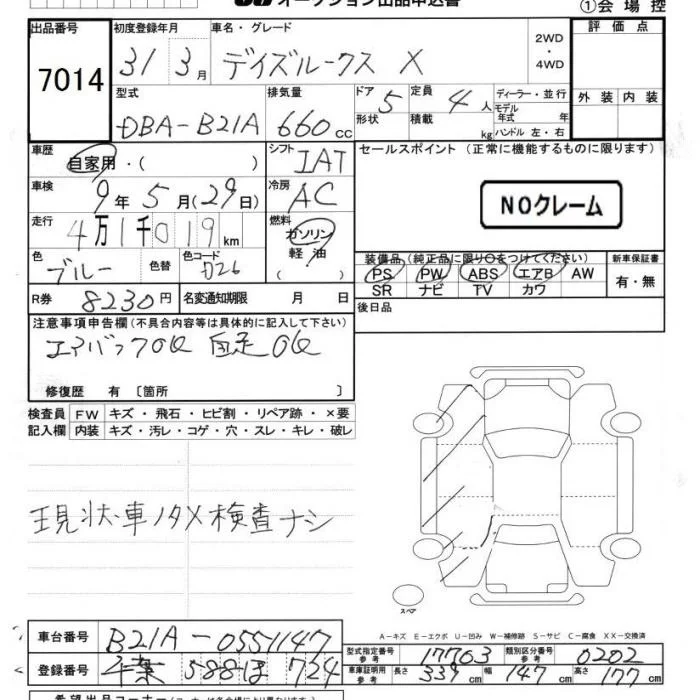 オークション出品申込書
①会場控
出品番号
7014
初度登録年月
31 3月
車名・グレード
デイズルークス X
2WD
・
4WD
評価点
外装 内装
型式
DBA-B21A
排気量
660cc
ドア 5
形状
定員 4人
積載 kg
ディーラー・並行
モデル年式 年
ハンドル 左・右
車歴
自家用・( )
シフト
IAT
セールスポイント (正常に機能するものに限ります)
NOクレーム
車検
9年5月(29日)
冷房
AC
走行
4万1千019km
燃料
ガソリン
軽油
( )
色
ブルー
色替
色コード
装備品 (純正品に限り○をつけてください)
新車保証書
PS PW ABS エアB AW
有・無
SR ナビ TV カワ
R券 8230円
名変通知期限 月 日
後日品
注意事項申告欄(不具合内容等は具体的に記入して下さい)
修復歴 有 〔箇所 〕
検査員 FW キズ・飛石・ヒビ割・リペア跡・×要
記入欄 内装 キズ・汚レ・コゲ・穴・スレ・キレ・破レ
現状車ノタメ検査ナシ
スペア
A-キズ E-エクボ U-凹み W-補修跡 S-サビ C-腐食 XX-交換済
車台番号 B21A-0551147
型式指定番号 参考 17703
類別区分番号 参考 0202
登録番号 千葉 588 ほ 724
車庫証明用 参考 長さ 339cm 幅 147cm 高さ 177cm